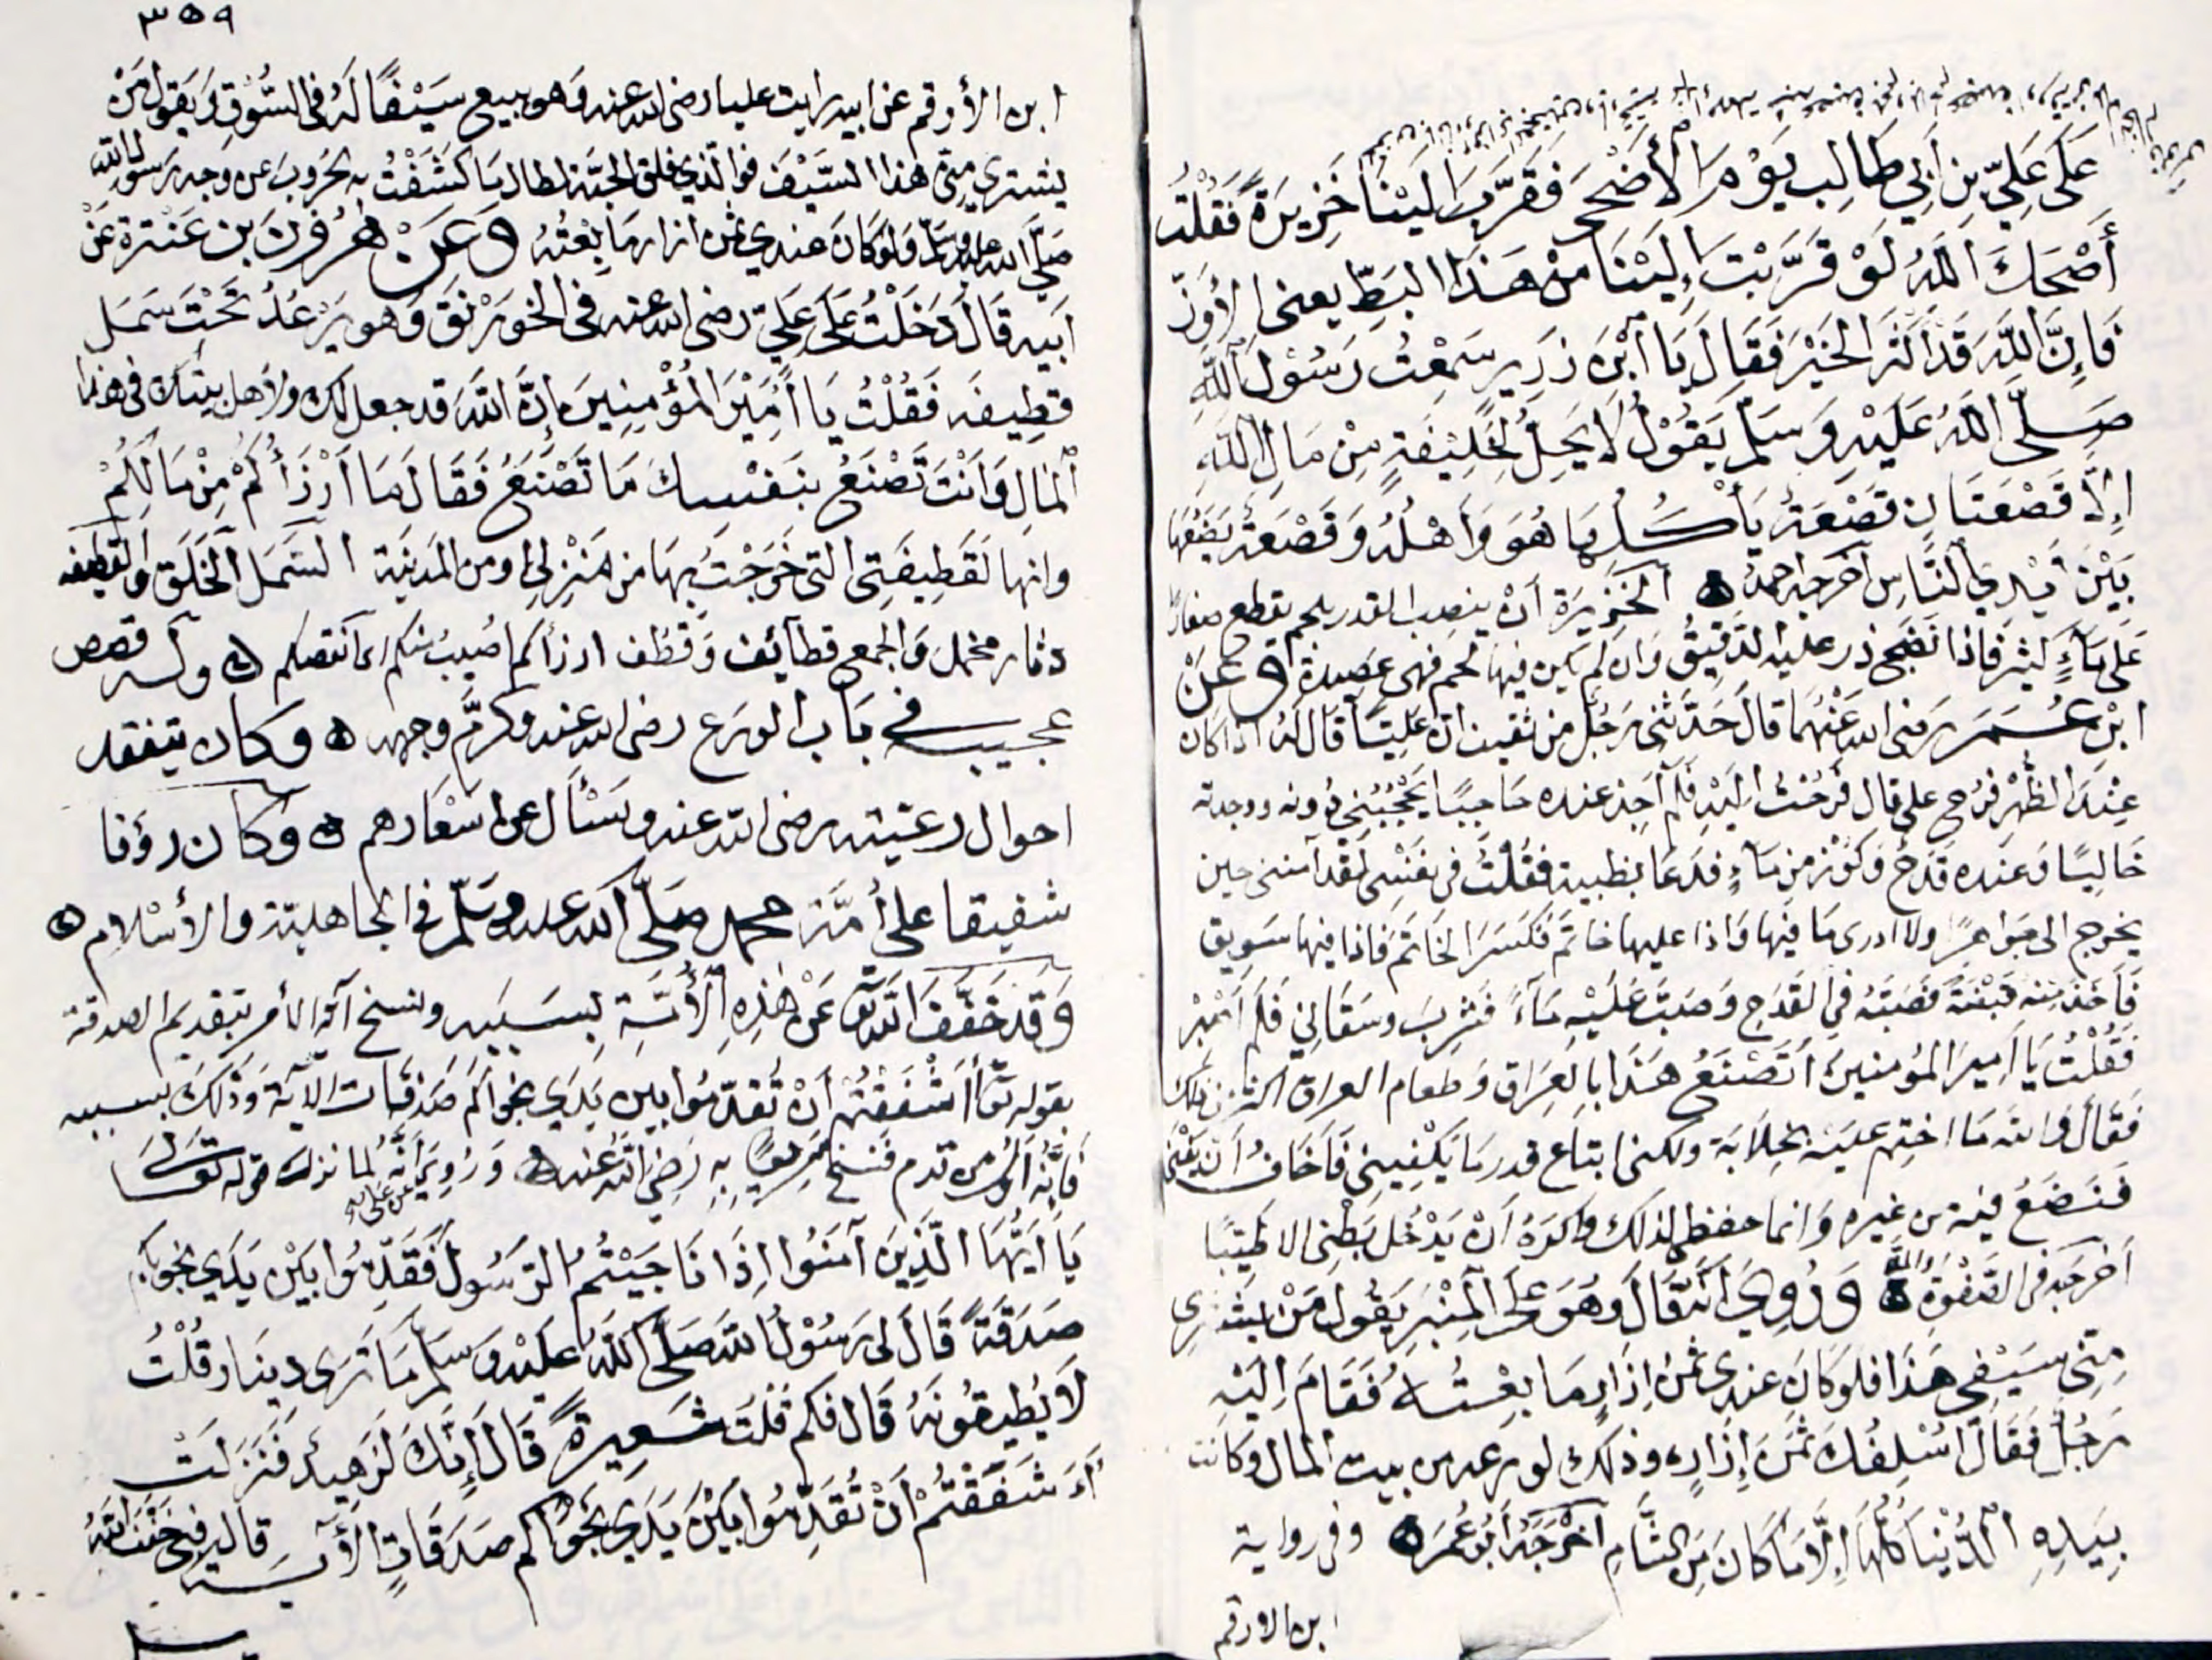 على عَلِيِّ بن أبي طَالِب يَوْمَ الأَضْحَى فَقَرَّبَ إلَيْنَا خَزِيرَةً فَقُلْتُ
أَصْلَحَكَ اللهُ لَوْ قَرَّبْتَ إِلَيْنَا مِنْ هَذَا البَطِّ يعني الأوَزّ
فَإِنَّ اللهَ قَدْ أَكْثَرَ الخَيْرَ فَقَالَ يَا ابْنَ زرير سَمِعْتُ رَسُوْلَ اللهِ
صَلَّى اللهُ عَلَيْهِ وَسَلَّمَ يَقُوْلُ لَا يَحِلُّ لِخَلِيْفَةٍ مِنْ مَالِ اللهِ
إِلَّا قَصْعَتَانِ قَصْعَةٌ يَأْكُلُهَا هُوَ وَأَهْلُهُ وَقَصْعَةٌ يَضَعُهَا
بَيْنَ أَيْدِي النَّاسِ أخرجه احمد ه الخَزِيرَة أنْ ينصب القدر بلحم يقطع صغارًا
عَلَى مَآءٍ كثير فاذا نَضِجَ ذر عليه الدَّقِيْقُ وَان لم يَكن فيها لحم فهي عَصِيدة وَعَنْ
ابْنِ عُمَرَ رَضي الله عَنْهُمَا قالَ حَدَّثَنِي رَجُلٌ من ثقيف ان عَلِيًّا قَالَ لَهُ اذا كان
عِنْدَ الظُّهْرِ فَرُحْ علي قال فَرُحْتُ اليْهِ فَلَم أجِدْ عنده حَاجِبًا يَحْجُبُنِي دُونه ووجدته
جَالِسًا وَعنده قَدَح وَكُوْز من مَآءٍ فدَعَا بظبية فَقُلْتُ في نَفْسِي لَقَد أمنني حين
يخرج الى جَوَاهِرًا ولا ادرى مَا فِيْهَا وَاذا عليها خاتم فَكَسَرَ الخَاتَمَ فَاذا فيها سَوِيق
فَأخَذ مِنْه قَبْضَةً فَصَبَّهُ في القَدَحِ وَصَبَّ عَلَيْهِ مَآءً فَشَرِبَ وسَقَانِي فَلَم أَصْبِر
فَقُلْتُ يَا أمِيرَ المُؤمنين أتَصْنَعُ هَذَا بالعِرَاق وَطعام العراق أكثر من ذلك
فَقَال وَالله مَا اختِم عَلَيْه بُخلًا به ولكني ابتاع قدر مَا يَكْفِيْنِي فَأخَافُ أنْ يَفْنَى
فَنَضَعُ فيه من غيره وَانما حفظي لذلك وَاكره أنْ يَدْخُلَ بَطْنِي الا طَيِّبًا
أخرَجَه فى الصَّفْوَة ه وَرُوِيَ انّه قَالَ وَهُوَ عَلَى المِنْبَرِ وَاللهِ يَقُولُ مَنْ يَشْتَرِي
مِنِّي سَيْفِي هَذَا فلَوكَانَ عندي ثَمَنُ إِزَارٍ مَا بِعْتُهُ فَقَامَ إليْهِ
رَجُلٌ فَقَالَ أُسْلِفُكَ ثَمَنَ إِزَارٍ وذلك لورعه من بيت المال وكَانت
بِيَدِهِ الدُّنْيَا كُلُّهَا إِلَّا مَا كَانَ مِنَ الشَّامِ أخْرَجَهُ أبُو عُمَرَ ه وفي رواية
ابن الارقم
٣٥٩
ابن الأرقم عن ابيه رايت عليا رضى الله عنه وَهو يبيع سَيْفًا لَهُ فى السُّوْقِ وَيَقول مَنْ
يشتري مِنّي هذا السَّيْفَ فوالّذي فلق الحبَّة لطال مَا كَشَفْتُ به الحُروبَ عن وجه رَسُولِ الله
صَلَّى الله عليه وسَلَّم وَلَوْ كَانَ عندي ثمن ازار مَا بِعْتُهُ وَعَنْ هَرُوْنَ بن عَنْتَرة عَنْ
ابيه قَالَ دَخَلْتُ عَلَى عَلِيّ رضى الله عنه فى الخورْنَقَ وَهو يَرْعُدُ تَحْتَ سَمَلِ
قَطِيفَه فَقُلْتُ يَا أَمِيْرَ المُؤْمِنِيْنَ إِنَّ اللهَ قد جعل لك ولأهل بيتك فى هذا
المَالِ وَأنْتَ تَصْنَعُ بنَفْسِكَ مَا تَصْنَعُ فَقَالَ مَا أَرْزَأُكُمْ مِنْ مَالِكُمْ
وانها لَقَطِيفَتِي التي خَرَجْتُ بِهَا من مَنْزِلي او من المَدِيْنَة السَّمَل الخَلَق وَالقَطِيفه
دثار مخمل وَالجمع قطآئف وَقُطُف ارزأكم اصيب منكم اى انتقصكم ه وله قصص
عجيبه في بَاب الورَع رضى الله عنه وكَرَّمَ وجهه ه وكان يتفقد
احوال رعيته رضى الله عنه ويسْأل عن اسْعَارهم ه وكان رؤفا
شفيقا على أمَّة محمد صَلَّى الله عليه وسَلَّم فى الجاهليّة والإسْلام ه
وَقَدْ خَفَّفَ الله تعَ عَنْ هٰذِهِ الأُمَّةِ بِسَبَبِه ونسخ آنه الأمر بتقديم الصدقة
بقوله تعَ أأَشْفَقْتُمْ أَنْ تُقَدِّمُوا بين يَدَي نجواكم صَدَقَات الآية وَذَلكَ بسببه
يَا أَيُّهَا الَّذِينَ آمَنُوا إِذَا نَاجَيْتُمُ الرَّسُولَ فَقَدِّمُوا بَيْنَ يَدَي نجواكم
صَدَقَةً قَالَ لى رَسُوْلُ الله صَلَّى اللهُ عَلَيْهِ وَسَلَّمَ مَا تَرَى دِينَار قُلْتُ
لَا يُطِيقُونَهُ قَال فكم قُلْتُ شَعِيرَةً قَالَ إِنَّكَ لَزَهِيدٌ فَنَزَلَتْ
أَأَشْفَقْتُمْ أَنْ تُقَدِّمُوا بَيْنَ يَدَي نَجْوَاكم صَدَقَاتٍ الآية قال فبي خَفَّفَ اللهُ